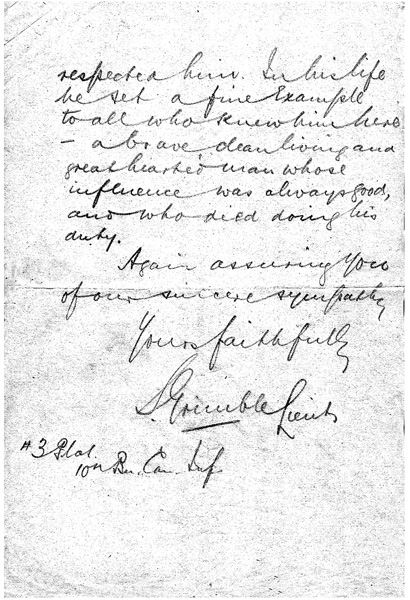 respected him. In his life
he set a fine Example
to all who knew him here
– a brave clean living and
great hearted man whose
influence was always good,
and who died doing his
duty.
Again assuring You
of our sincere sympathy
Yours faithfully
S. Grimble Lieut
#3 Plat.
10th Bn. Can. Inf.